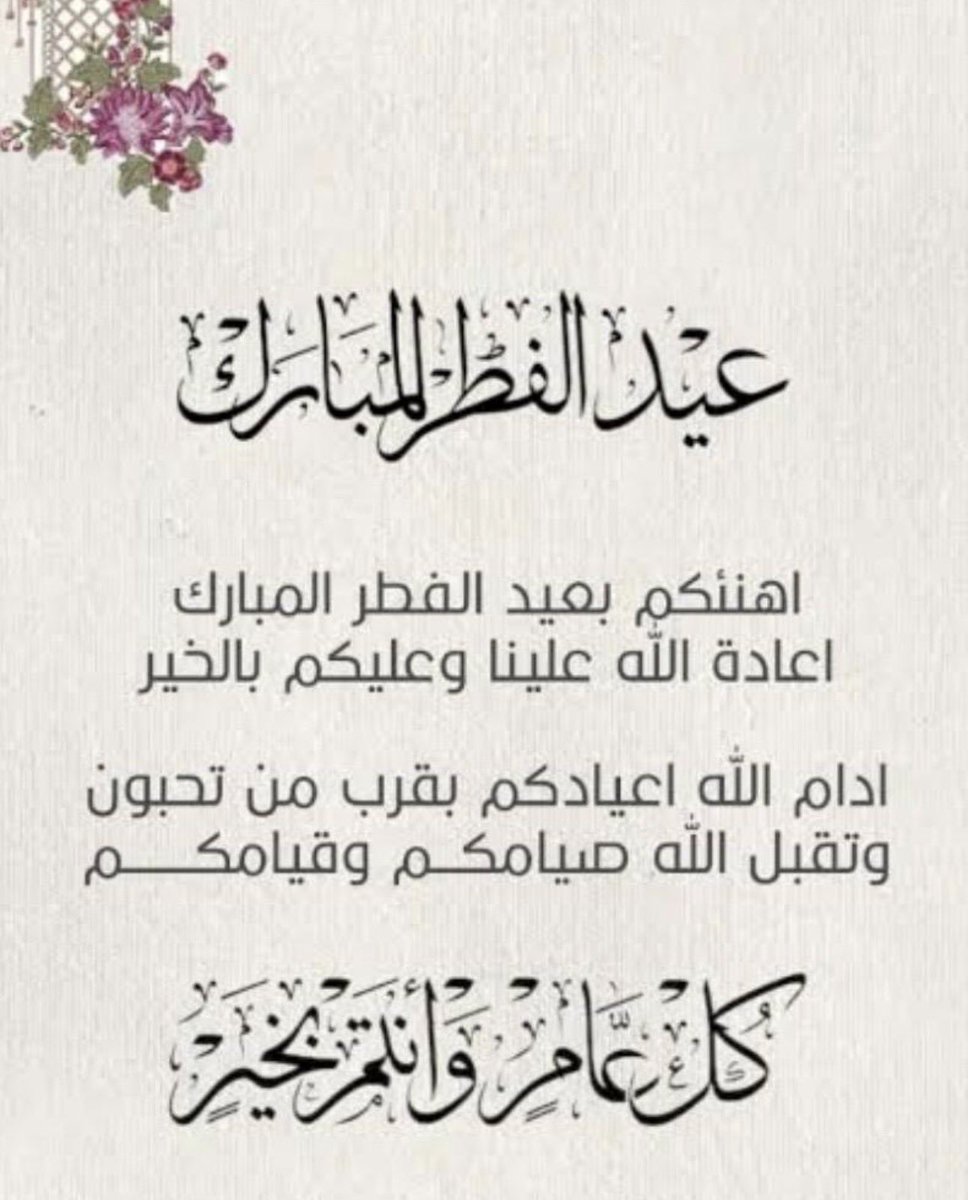 عيد الفطر المبارك
اهنئكم بعيد الفطر المبارك
اعادة الله علينا وعليكم بالخير
ادام الله اعيادكم بقرب من تحبون
وتقبل الله صيامكـم وقيامكـــم
كُل عَامٍ وَأنتَم بخَيرٍ